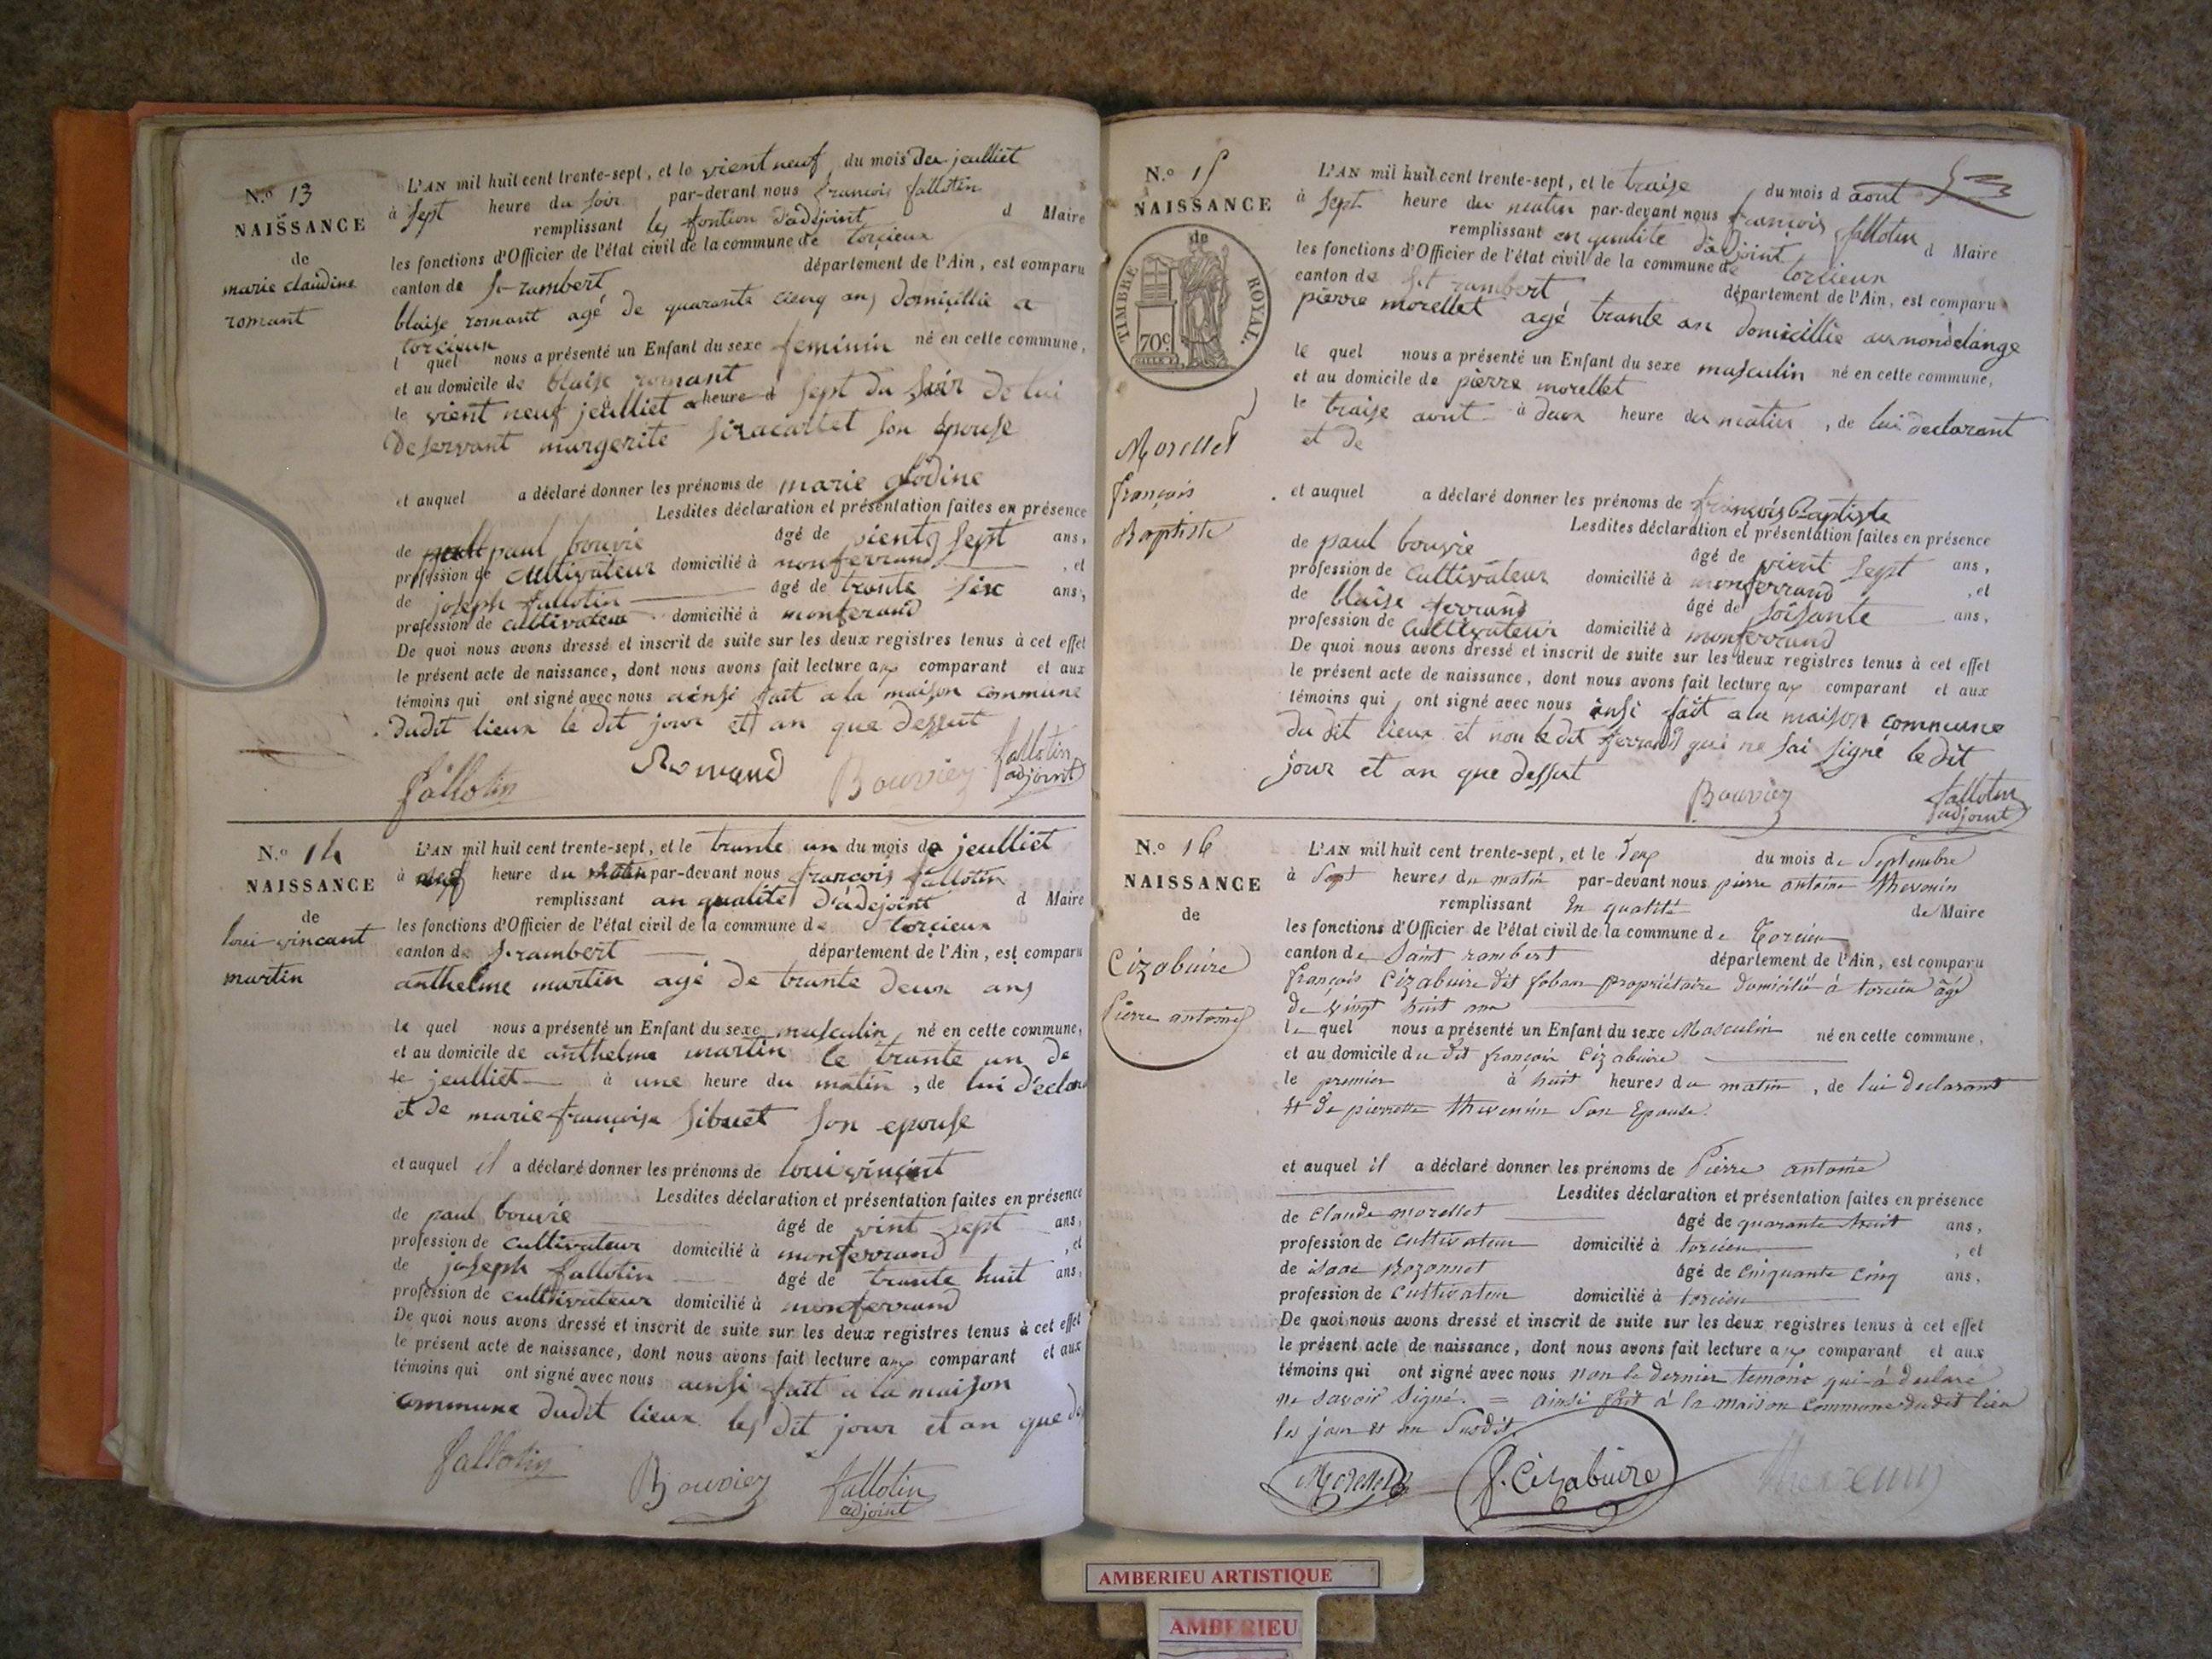 N.º 13
NAISSANCE
de
marie claudine
romant
L'AN mil huit cent trente-sept, et le vient neuf du mois de jeulliet
à sept heure du soir par-devant nous francois fallotin
remplissant les fontion d'adejoint d Maire
les fonctions d'Officier de l'état civil de la commune de torcieux
canton de St rambert département de l'Ain, est comparu
blaise romant agé de quarante cienq ans domicillie a
torcieux
l quel nous a présenté un Enfant du sexe feminin né en cette commune,
et au domicile de blaise romant
le vient neuf jeulliet a heure d sept du soir de lui
margerite son epouse
et auquel a déclaré donner les prénoms de marie glodine
Lesdites déclaration et présentation faites en présence
de paul bouvie âgé de sept ans,
profession de cultivateur domicilié à monferrand, et
de joseph fallotin âgé de trante six ans,
profession de cultivateur domicilié à monferand
De quoi nous avons dressé et inscrit de suite sur les deux registres tenus à cet effet
le présent acte de naissance, dont nous avons fait lecture aux comparant et aux
témoins qui ont signé avec nous ainsi fait a la maison commune
dudit lieux le dit jour et an que dessut
fallotin Romand Bouvier fallotin
adjoint
N.º 14
NAISSANCE
de
loui vincant
martin
L'AN mil huit cent trente-sept, et le trante un du mois de jeulliet
à neuf heure du matin par-devant nous françois fallotin
remplissant an qualite d'adejoint d Maire
les fonctions d'Officier de l'état civil de la commune de torcieux
canton de St rambert département de l'Ain, est comparu
anthelme martin agé de trante deux ans
le quel nous a présenté un Enfant du sexe masculin né en cette commune,
et au domicile de anthelme martin le trante un de
le jeulliet à une heure du matin, de lui déclar
et de marie françoise sibuet son epouse
et auquel il a déclaré donner les prénoms de loui vincint
Lesdites déclaration et présentation faites en présence
de paul bouvie âgé de vint sept ans,
profession de cultivateur domicilié à monferrand, et
de joseph fallotin âgé de trante huit ans,
profession de cultivateur domicilié à monferrand
De quoi nous avons dressé et inscrit de suite sur les deux registres tenus à cet effet
le présent acte de naissance, dont nous avons fait lecture aux comparant et aux
témoins qui ont signé avec nous ainsi fait a la maison
commune dudit lieux les dit jour et an que
fallotin Bouvier fallotin
adjoint
N.º 15
NAISSANCE
de
TIMBRE ROYAL.
70c
Morellet
françois
Baptiste
L'AN mil huit cent trente-sept, et le traise du mois d aout
à sept heure du matin par-devant nous francois fallotin
remplissant en qualite d'adjoint d Maire
les fonctions d'Officier de l'état civil de la commune de torcieux
canton de St rambert département de l'Ain, est comparu
pierre morellet agé trante an domicillie au mondelange
le quel nous a présenté un Enfant du sexe masculin né en cette commune,
et au domicile de pierre morellet
le traise aout à deux heure du matin, de lui declarant
et de
et auquel a déclaré donner les prénoms de francois Baptiste
Lesdites déclaration et présentation faites en présence
de paul bouvie âgé de vient sept ans,
profession de cultivateur domicilié à monferrand, et
de blaise ferrand âgé de soisante ans,
profession de cultivateur domicilié à monferrand
De quoi nous avons dressé et inscrit de suite sur les deux registres tenus à cet effet
le présent acte de naissance, dont nous avons fait lecture aux comparant et aux
témoins qui ont signé avec nous insi fait a la maison commune
du dit lieux et non le dit ferrand qui ne sai signé le dit
jour et an que dessut
Bouvier fallotin
adjoint
N.º 16
NAISSANCE
de
Cizabuire
Pierre antoine
L'AN mil huit cent trente-sept, et le deux du mois de Septembre
à Sept heures du matin par-devant nous pierre antoine thevenin
remplissant En qualité de Maire
les fonctions d'Officier de l'état civil de la commune de Torcieu
canton de Saint rambert département de l'Ain, est comparu
françois Cizabuire dit propriétaire domicilié à torcieu âgé
de vingt huit ans
le quel nous a présenté un Enfant du sexe Masculin né en cette commune,
et au domicile du dit françois Cizabuire
le premier à huit heures du matin, de lui declarant
Et de pierrette thevenin Son Epouse.
et auquel il a déclaré donner les prénoms de Pierre antoine
Lesdites déclaration et présentation faites en présence
de Claude morellet âgé de quarante huit ans,
profession de cultivateur domicilié à torcieu, et
de isaac Bozonnet âgé de Cinquante cinq ans,
profession de Cultivateur domicilié à torcieu
De quoi nous avons dressé et inscrit de suite sur les deux registres tenus à cet effet
le présent acte de naissance, dont nous avons fait lecture aux comparant et aux
témoins qui ont signé avec nous non le dernier temoins qui à declaré
ne savoir Signé. = ainsi fait à la maison Commune dudit lieu
les jour et an Susdit.
Morellet f. Cizabuire Thevenin
AMBERIEU ARTISTIQUE
AMBERIEU